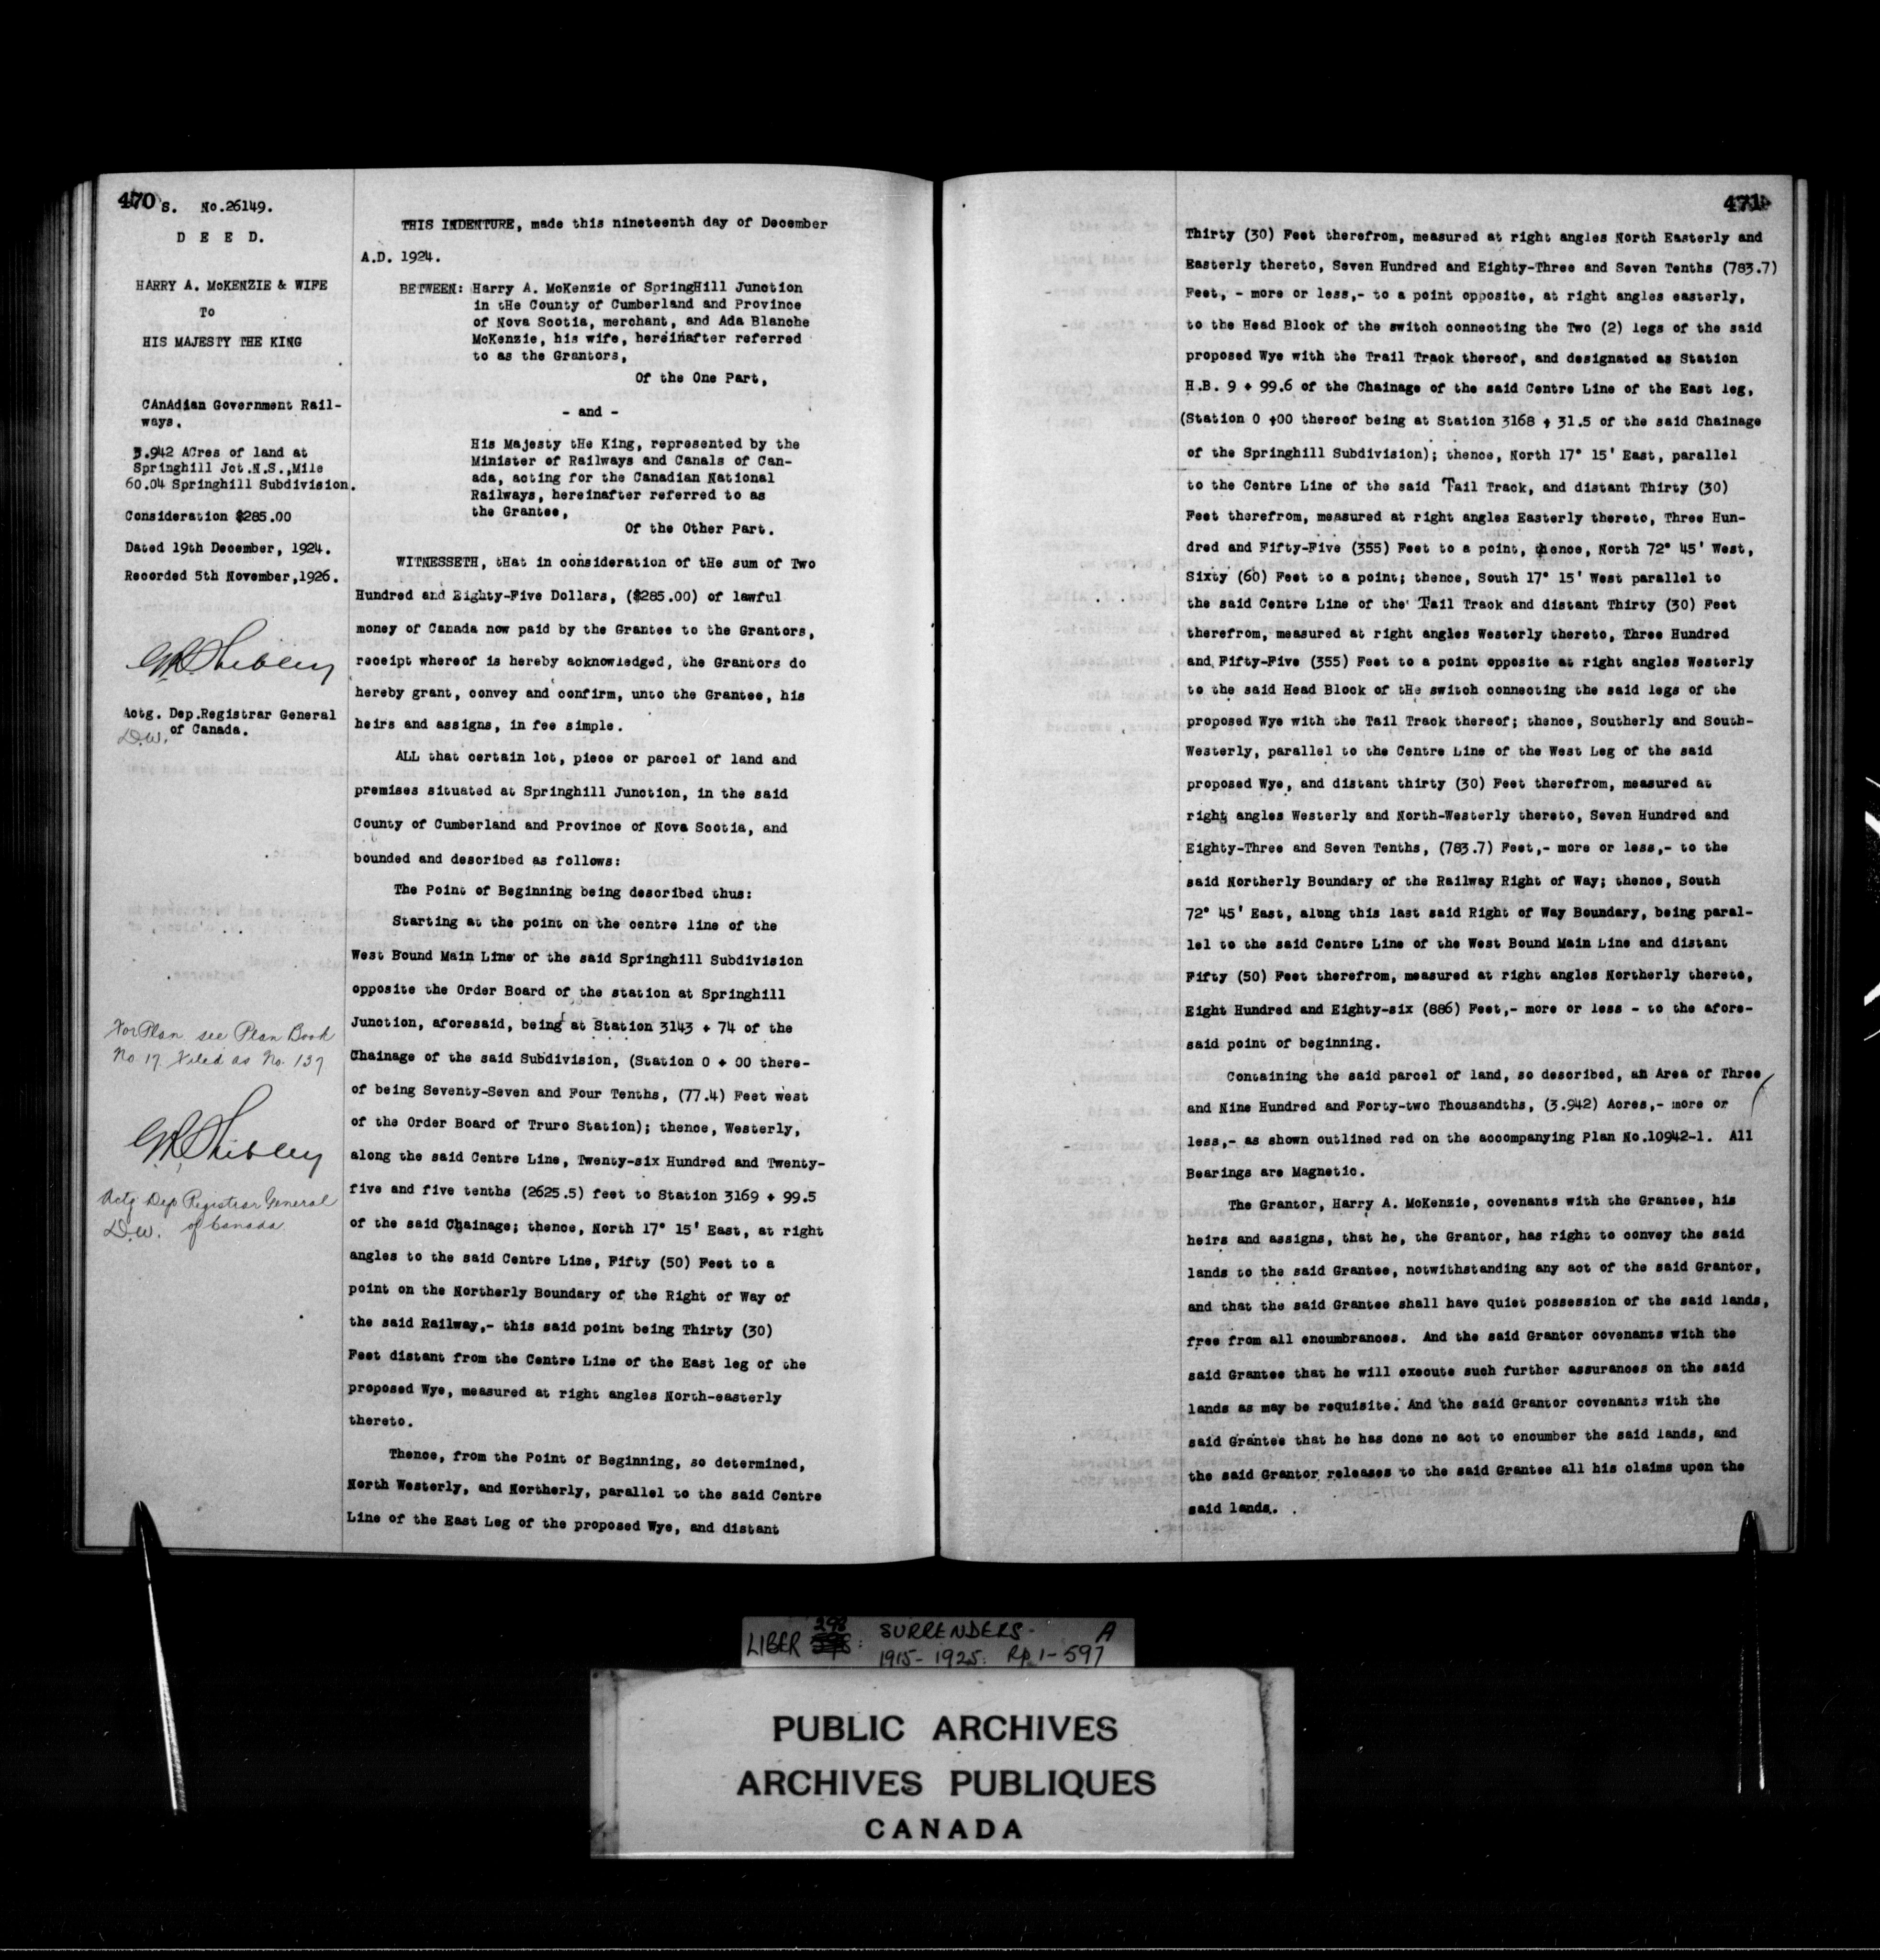 470 S. No.26149.
D E E D.
HARRY A. McKENZIE & WIFE
To
HIS MAJESTY THE KING
CAnAdian Government Rail-
ways.
3.942 ACres of land at
Springhill Jct.N.S.,Mile
60.04 Springhill Subdivision.
Consideration $285.00
Dated 19th December, 1924.
Recorded 5th November,1926.
Actg. Dep.Registrar General
of Canada.
D.W.
For Plan see Plan Book
No. 17. Filed as No. 137
Actg Dep Registrar General
D.W. of Canada.
THIS INDENTURE, made this nineteenth day of December
A.D. 1924.
BETWEEN: Harry A. McKenzie of SpringHill Junction
in tHe County of Cumberland and Province
of Nova Scotia, merchant, and Ada Blanche
McKenzie, his wife, hereinafter referred
to as the Grantors,
Of the One Part,
- and -
His Majesty tHe King, represented by the
Minister of Railways and Canals of Can-
ada, acting for the Canadian National
Railways, hereinafter referred to as
the Grantee,
Of the Other Part.
WITNESSETH, tHat in consideration of tHe sum of Two
Hundred and Eighty-Five Dollars, ($285.00) of lawful
money of Canada now paid by the Grantee to the Grantors,
receipt whereof is hereby acknowledged, the Grantors do
hereby grant, convey and confirm, unto the Grantee, his
heirs and assigns, in fee simple.
ALL that certain lot, piece or parcel of land and
premises situated at Springhill Junction, in the said
County of Cumberland and Province of Nova Scotia, and
bounded and described as follows:
The Point of Beginning being described thus:
Starting at the point on the centre line of the
West Bound Main Line of the said Springhill Subdivision
opposite the Order Board of the station at Springhill
Junction, aforesaid, being at Station 3143 + 74 of the
Chainage of the said Subdivision, (Station 0 + 00 there-
of being Seventy-Seven and Four Tenths, (77.4) Feet west
of the Order Board of Truro Station); thence, Westerly,
along the said Centre Line, Twenty-six Hundred and Twenty-
five and five tenths (2625.5) feet to Station 3169 + 99.5
of the said Chainage; thence, North 17° 15' East, at right
angles to the said Centre Line, Fifty (50) Feet to a
point on the Northerly Boundary of the Right of Way of
the said Railway,- this said point being Thirty (30)
Feet distant from the Centre Line of the East leg of the
proposed Wye, measured at right angles North-easterly
thereto.
Thence, from the Point of Beginning, so determined,
North Westerly, and Northerly, parallel to the said Centre
Line of the East Leg of the proposed Wye, and distant
471
Thirty (30) Feet therefrom, measured at right angles North Easterly and
Easterly thereto, Seven Hundred and Eighty-Three and Seven Tenths (783.7)
Feet, - more or less,- to a point opposite, at right angles easterly,
to the Head Block of the switch connecting the Two (2) legs of the said
proposed Wye with the Trail Track thereof, and designated as Station
H.B. 9 + 99.6 of the Chainage of the said Centre Line of the East leg,
(Station 0 +00 thereof being at Station 3168 + 31.5 of the said Chainage
of the Springhill Subdivision); thence, North 17° 15' East, parallel
to the Centre Line of the said Tail Track, and distant Thirty (30)
Feet therefrom, measured at right angles Easterly thereto, Three Hun-
dred and Fifty-Five (355) Feet to a point, thence, North 72° 45' West,
Sixty (60) Feet to a point; thence, South 17° 15' West parallel to
the said Centre Line of the Tail Track and distant Thirty (30) Feet
therefrom, measured at right angles Westerly thereto, Three Hundred
and Fifty-Five (355) Feet to a point opposite at right angles Westerly
to the said Head Block of tHe switch connecting the said legs of the
proposed Wye with the Tail Track thereof; thence, Southerly and South-
Westerly, parallel to the Centre Line of the West Leg of the said
proposed Wye, and distant thirty (30) Feet therefrom, measured at
right angles Westerly and North-Westerly thereto, Seven Hundred and
Eighty-Three and Seven Tenths, (783.7) Feet,- more or less,- to the
said Northerly Boundary of the Railway Right of Way; thence, South
72° 45' East, along this last said Right of Way Boundary, being paral-
lel to the said Centre Line of the West Bound Main Line and distant
Fifty (50) Feet therefrom, measured at right angles Northerly thereto,
Eight Hundred and Eighty-six (886) Feet,- more or less - to the afore-
said point of beginning.
Containing the said parcel of land, so described, an Area of Three
and Nine Hundred and Forty-two Thousandths, (3.942) Acres,- more or
less,- as shown outlined red on the accompanying Plan No.10942-1. All
Bearings are Magnetic.
The Grantor, Harry A. McKenzie, covenants with the Grantee, his
heirs and assigns, that he, the Grantor, has right to convey the said
lands to the said Grantee, notwithstanding any act of the said Grantor,
and that the said Grantee shall have quiet possession of the said lands,
free from all encumbrances. And the said Grantor covenants with the
said Grantee that he will execute such further assurances on the said
lands as may be requisite. And the said Grantor covenants with the
said Grantee that he has done no act to encumber the said lands, and
the said Grantor releases to the said Grantee all his claims upon the
said lands.
LIBER 298: SURRENDERS- A
1915-1925. Pp 1-597
PUBLIC ARCHIVES
ARCHIVES PUBLIQUES
CANADA